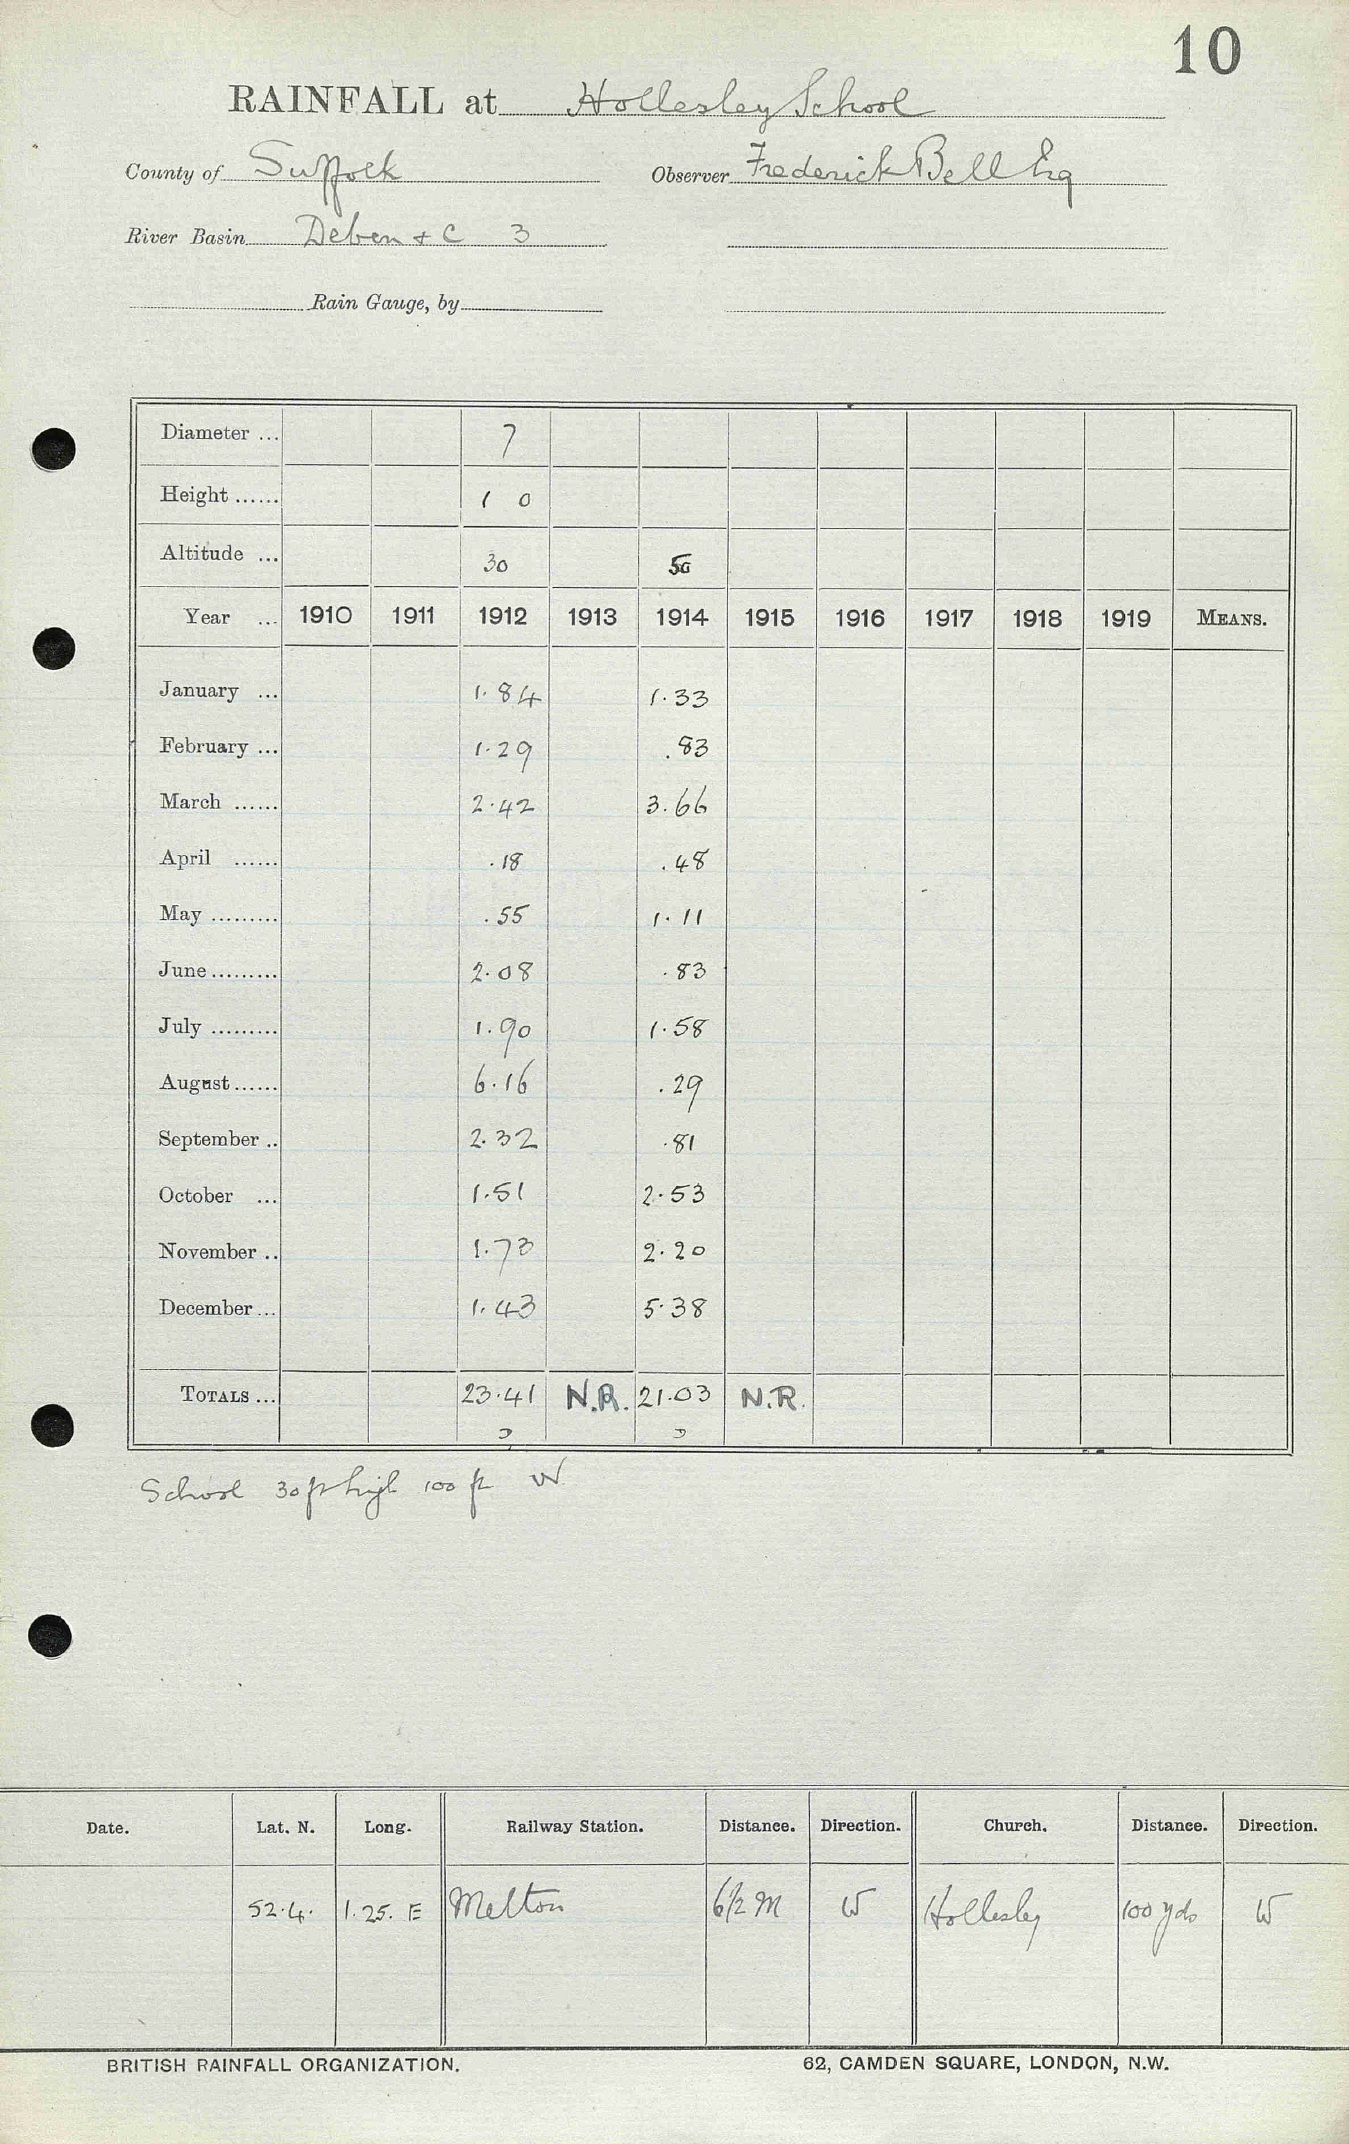 10
RAINFALL at Hollesley School
County of Suffolk Observer Frederick Bell Esq
River Basin Deben & C 3
Rain Gauge, by
Diameter ... 7
Height ...... 1 0
Altitude ... 30 50
Year ... 1910 1911 1912 1913 1914 1915 1916 1917 1918 1919 MEANS.
January ... 1.84 1.33
February ... 1.29 .83
March ...... 2.42 3.66
April ...... .18 .48
May ......... .55 1.11
June ......... 2.08 .83
July ......... 1.90 1.58
August ...... 6.16 .29
September .. 2.32 .81
October ... 1.51 2.53
November .. 1.73 2.20
December ... 1.43 5.38
TOTALS ... 23.41 N.R. 21.03 N.R.
School 30 ft high 100 ft W
Date. Lat. N. Long. Railway Station. Distance. Direction. Church. Distance. Direction.
52.4. 1.25. E Melton 6 1/2 M W Hollesley 100 yds W
BRITISH RAINFALL ORGANIZATION. 62, CAMDEN SQUARE, LONDON, N.W.